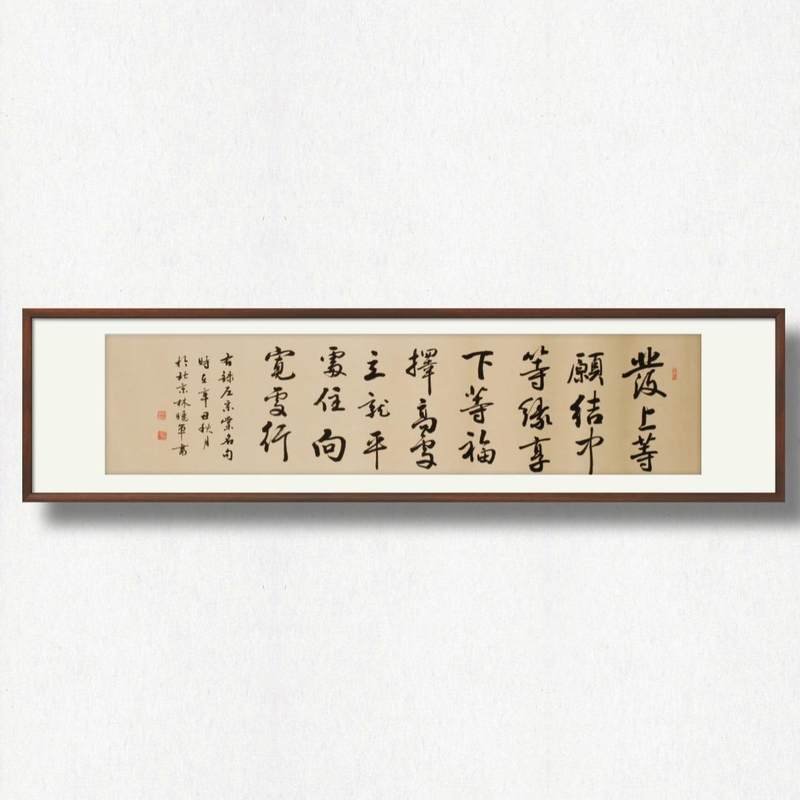 發上等
願結中
等緣享
下等福
擇高處
立就平
處住向
寬處行
右錄左宗棠名句
時在辛丑秋月
於北京林曉軍書